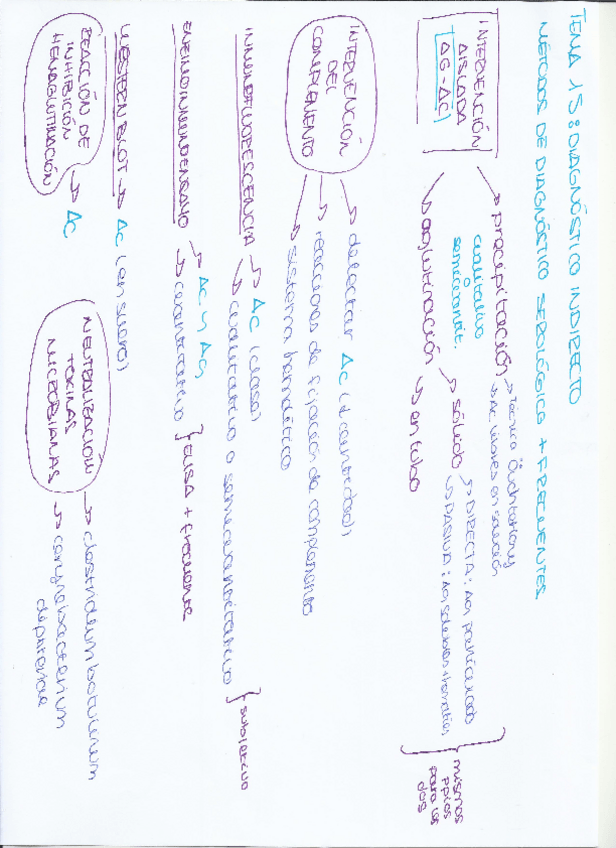 TEMA 15: DIAGNÓSTICO INDIRECTO
MÉTODOS DE DIAGNÓSTICO SEROLÓGICO + FRECUENTES
INTERVENCIÓN
AISLADA
(AG-AC)
→ precipitación
→ Técnica Ouchterlony
→ AC libres en solución
cualitativo
o
semicuantit.
→ aglutinación
→ sólido
→ DIRECTA: Ag particulado
→ PASIVA: Ag solubles
→ en tubo
mismos
ppios
para los
dos
INTERVENCIÓN
DEL
COMPLEMENTO
→ detectar AC (↓ cantidad)
→ reacciones de fijación de complemento
→ sistema hemolítico
INMUNOFLUORESCENCIA
→ AC (clase)
→ cualitativo o semicuantitativo } subjetivo
ENZIMOINMUNOENSAYO
→ AC y AG
→ cuantitativo } ELISA + frecuente
WESTERN BLOT → AC (en suero)
REACCIÓN DE
INHIBICIÓN
HEMAGLUTINACIÓN
→ AC
NEUTRALIZACIÓN
TOXINAS
MICROBIANAS
→ clostridium botulinum
→ corynebacterium
diphteriae